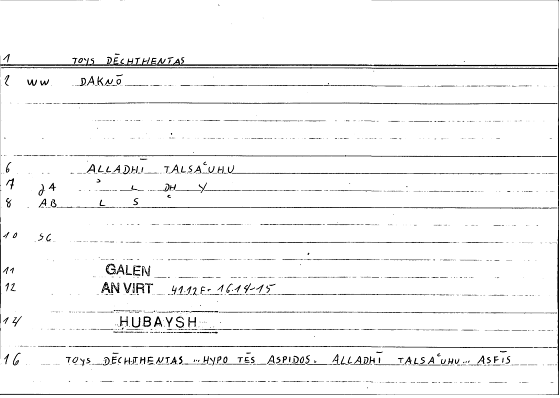 1 TOYS DĒCHTHENTAS
2 WW DAKNŌ
6 ALLADHĪ TALSAʿUHU
7 J4 ʾ L DH Y
8 AB L S ʿ
10 SG
11 GALEN
12 AN VIRT 41.12F- 16.14-15
14 HUBAYSH
16 TOYS DĒCHTHENTAS ... HYPO TĒS ASPIDOS. ALLADHĪ TALSAʿUHU ... ASFĪS